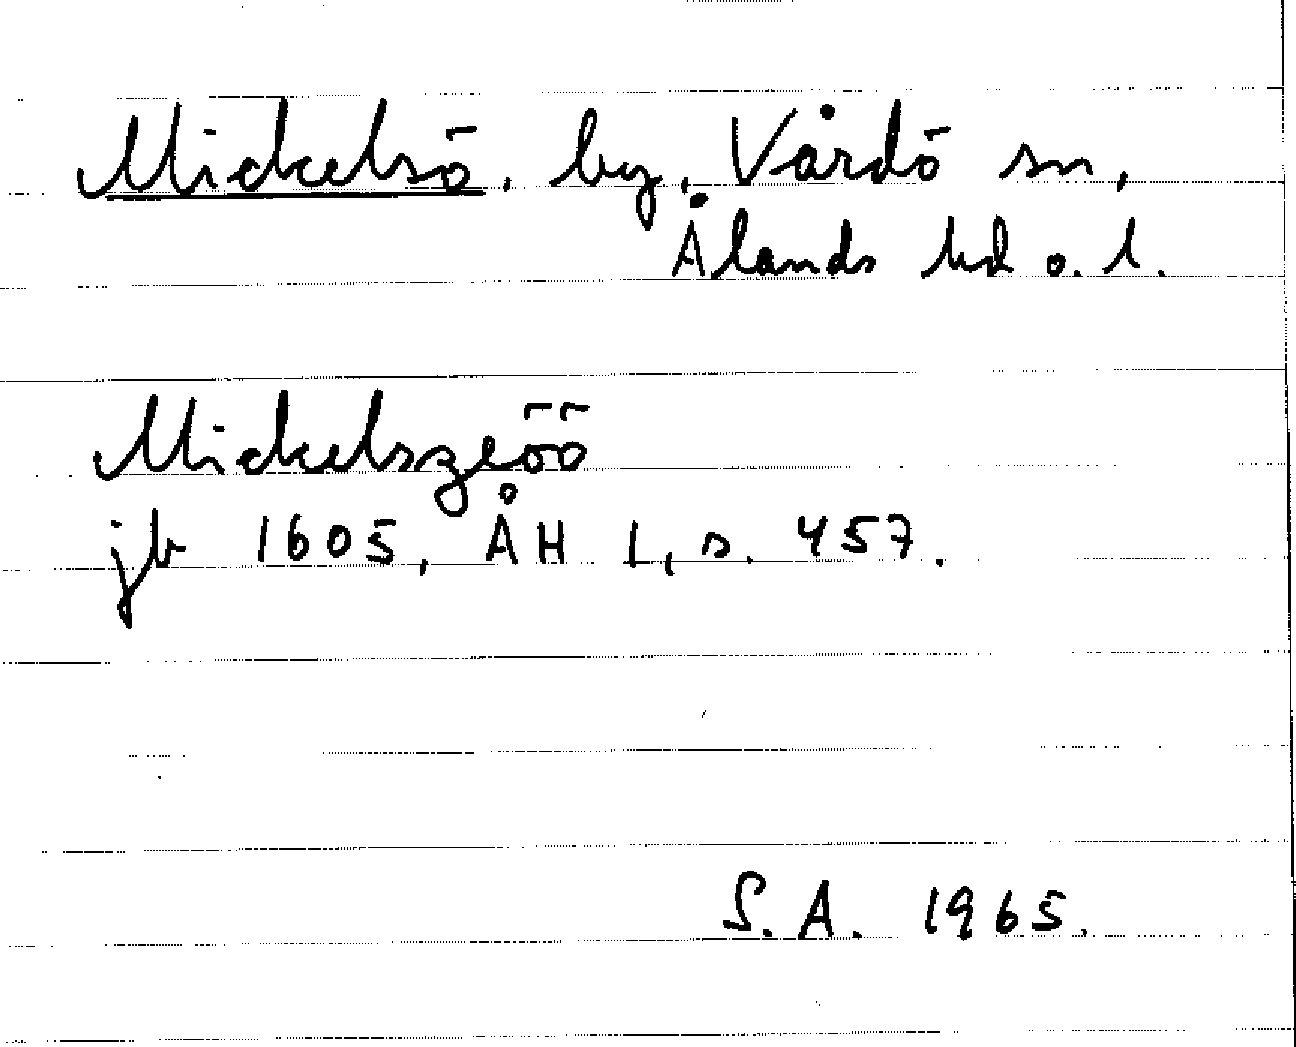 Mickelsö, by, Vårdö sn,
Ålands hd o. l.
Mickelszeöö
jb 1605, ÅH I, s. 457.
S. A. 1965.